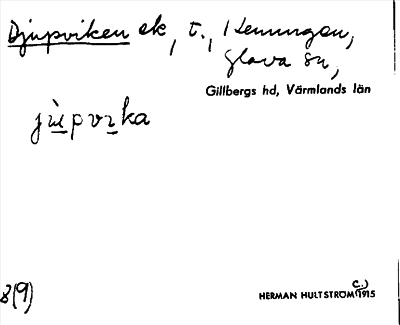 Djupviken ek, t., Henningen,
Glava sn,
Gillbergs hd, Värmlands län
jùpvıka
8(9)
C.)
HERMAN HULTSTRÖM 1915